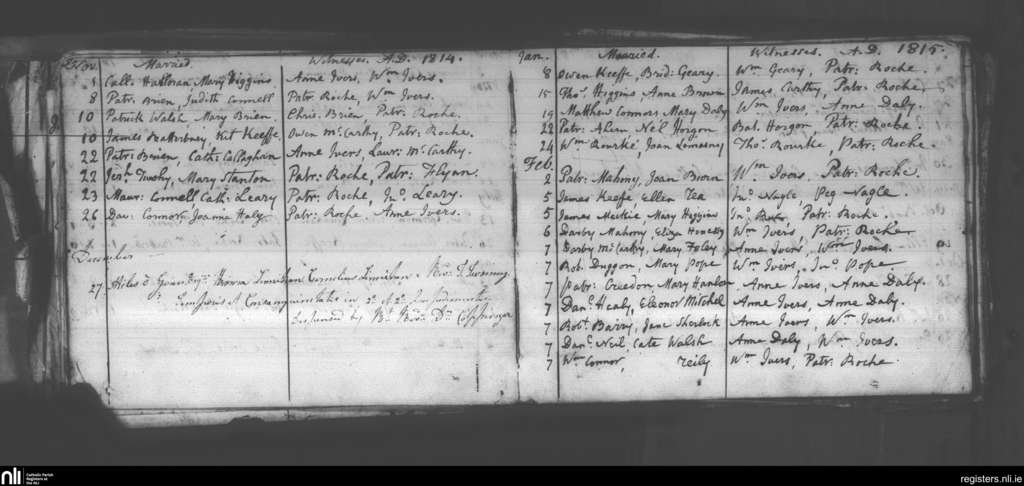 Nov. Married. Witnesses. A.D. 1814.
1 Call: Halloran, Mary Higgins Anne Ivers, Wm Ivers.
8 Patr: Brien, Judith Connell Patr Roche, Wm Ivers.
10 Patrick Walsh Mary Brien. Chris. Brien Patr. Roche.
10 James Kit Keeffe. Owen McCarthy, Patr: Roche.
22 Patr: Brien, Cath: Callaghan Anne Ivers, Laur: McCarthy.
22 Jer: Twohy, Mary Stanton Patr: Roche, Patr: Flynn.
23 Maur: Connell Cath: Leary Patr: Roche, Jno. Leary.
26 Dav: Connor Joanna Haly Patr: Roche. Anne Ivers.
December
27. Cornelius
in 2o et 2o
by Dr. Coppinger
Jan. Married. Witnesses. A.D. 1815.
8 Owen Keeffe, Brid: Geary. Wm Geary, Patr: Roche.
15 Tho: Higgins, Anne Brown James Carthy, Patr: Roche.
19 Matthew Connors Mary Daly Wm Ivers, Anne Daly.
22 Patr: Ahern Nel Horgon Bat. Horgon, Patr: Roche
24 Wm Rourke, Joan Tho: Rourke, Patr: Roche.
Feb.
2 Patr: Mahony, Joan Brien Wm Ivers. Patr: Roche.
5 James Keeffe Ellen Jno. Nagle Peg Nagle.
5 James Mary Higgins Jno. Patr: Roche.
6 Darby Mahony, Eliza Wm Ivers, Patr: Roche
7 Darby McCarthy, Mary Foley Anne Ivers, Wm Ivers.
7 Rob: Duggon, Mary Pope Wm Ivers, Jno. Pope
7 Patr: Creedon, Mary Hanlon Anne Ivers, Anne Daly.
7 Danl: Healy, Eleonor Mitchel Anne Ivers, Anne Daly.
7 Robt: Barry, Jane Sherlock Anne Ivers, Wm Ivers.
7 Danl: Neil Cate Walsh Anne Daly, Wm Ivers.
7 Wm Connor, Reily Wm Ivers, Patr: Roche.
nli Catholic Parish Registers at the NLI
registers.nli.ie